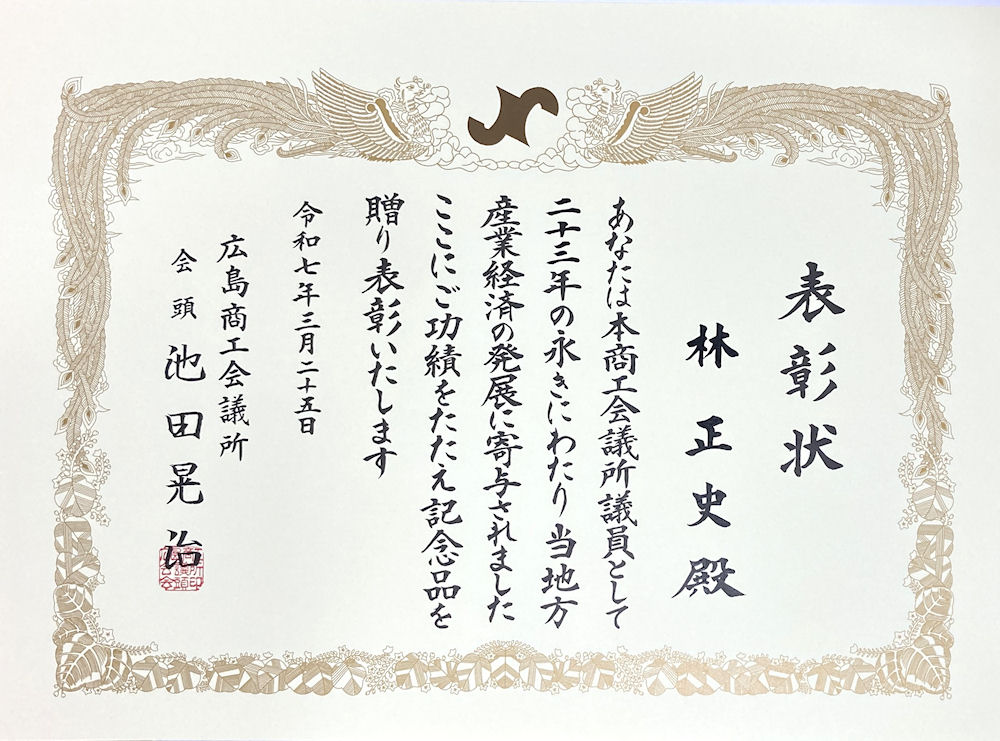 表彰状
林正史殿
あなたは本商工会議所議員として
二十三年の永きにわたり当地方
産業経済の発展に寄与されました
ここにご功績をたたえ記念品を
贈り表彰いたします
令和七年三月二十五日
広島商工会議所
会頭 池田晃治